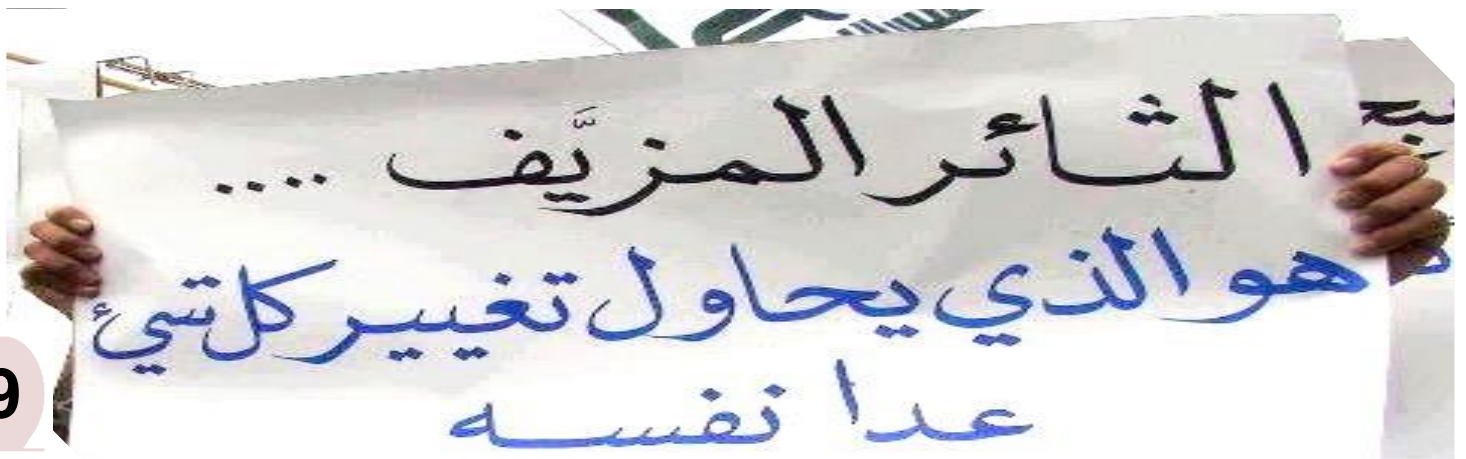 الثائر المزيَّف ....
هو الذي يحاول تغيير كل شيئ
عدا نفسه
9